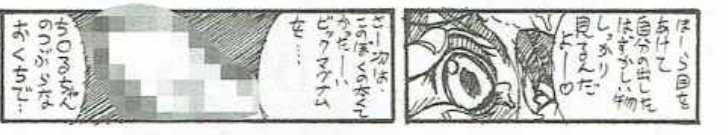 ほーら目を
あけて
自分の出した
はずかしい物
しっかり
見るんだ
よー♡
さー次は・
このぼくのながくて
かったーい
ビックマグナム
を…
ちロるちゃん
のつぶらな
おくちで…